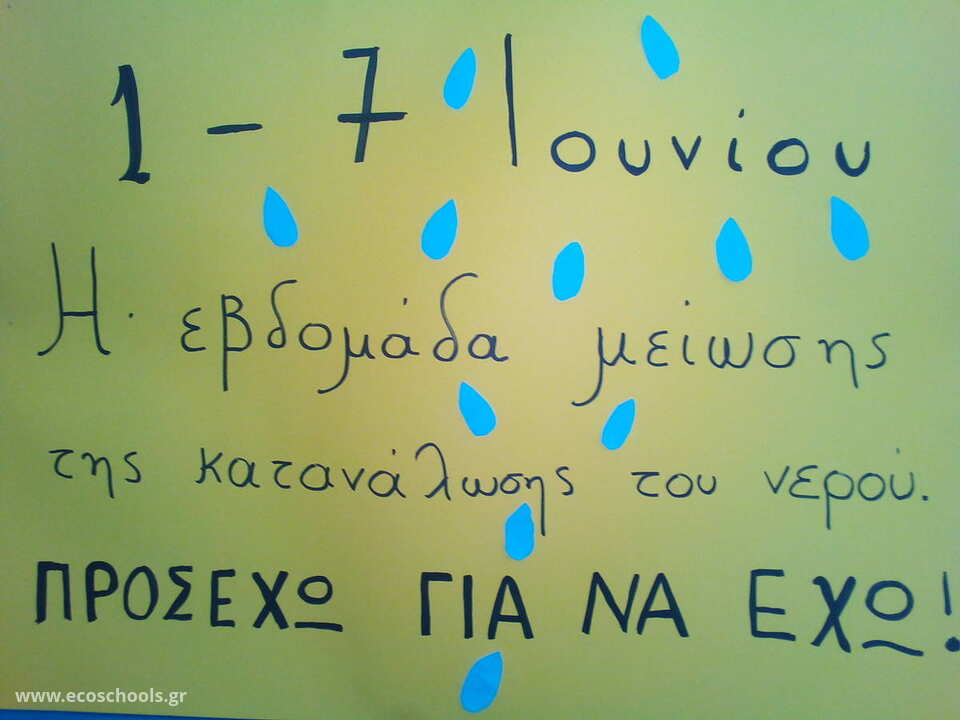 1 - 7 Ιουνίου
Η εβδομάδα μείωσης
της κατανάλωσης του νερού.
ΠΡΟΣΕΧΩ ΓΙΑ ΝΑ ΕΧΩ!
www.ecoschools.gr